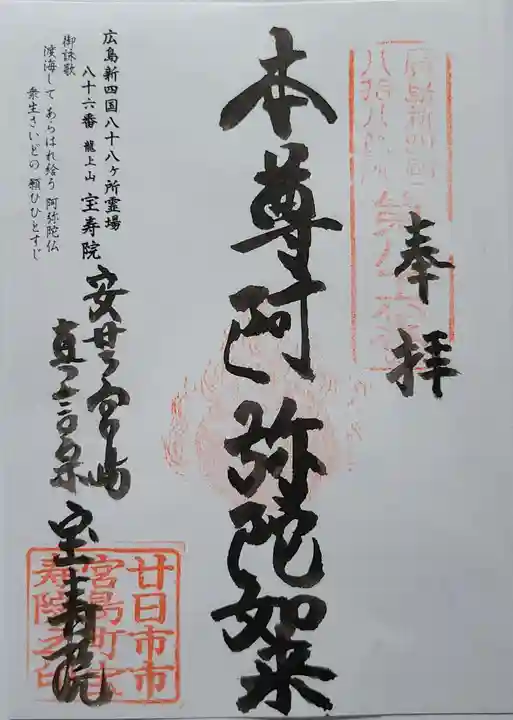 奉拝
本尊阿弥陀如来
広島新四国八十八ヶ所霊場
八十六番 龍上山 宝寿院
御詠歌
渡海して あらはれ給う 阿弥陀仏
衆生さいどの 願ひひとすじ
安芸宮島
真言宗 宝寿院
廿日市市
宮島町宝
寿院之印